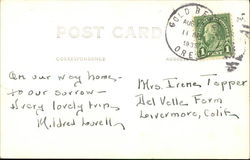 POST CARD
CORRESPONDENCE
ADDRESS
GOLD BE
AUG
11 AM
193
ORE
1
On our way home
to our sorrow -
Every lovely trip
Mildred Lowell
Mrs. Irene Tapper
Del Valle Farm
Livermore, Calif